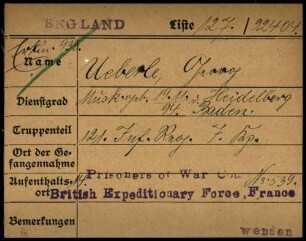 ENGLAND Liste 127/22404
Name Ueberle, Georg
Dienstgrad Musk. Heidelberg
Baden.
Truppenteil 121. Inf. Reg. 7. Kp.
Ort der Ge-
fangennahme
Aufenthalts- Prisoners of War
ort British Expeditionary Force, France
Bemerkungen wenden